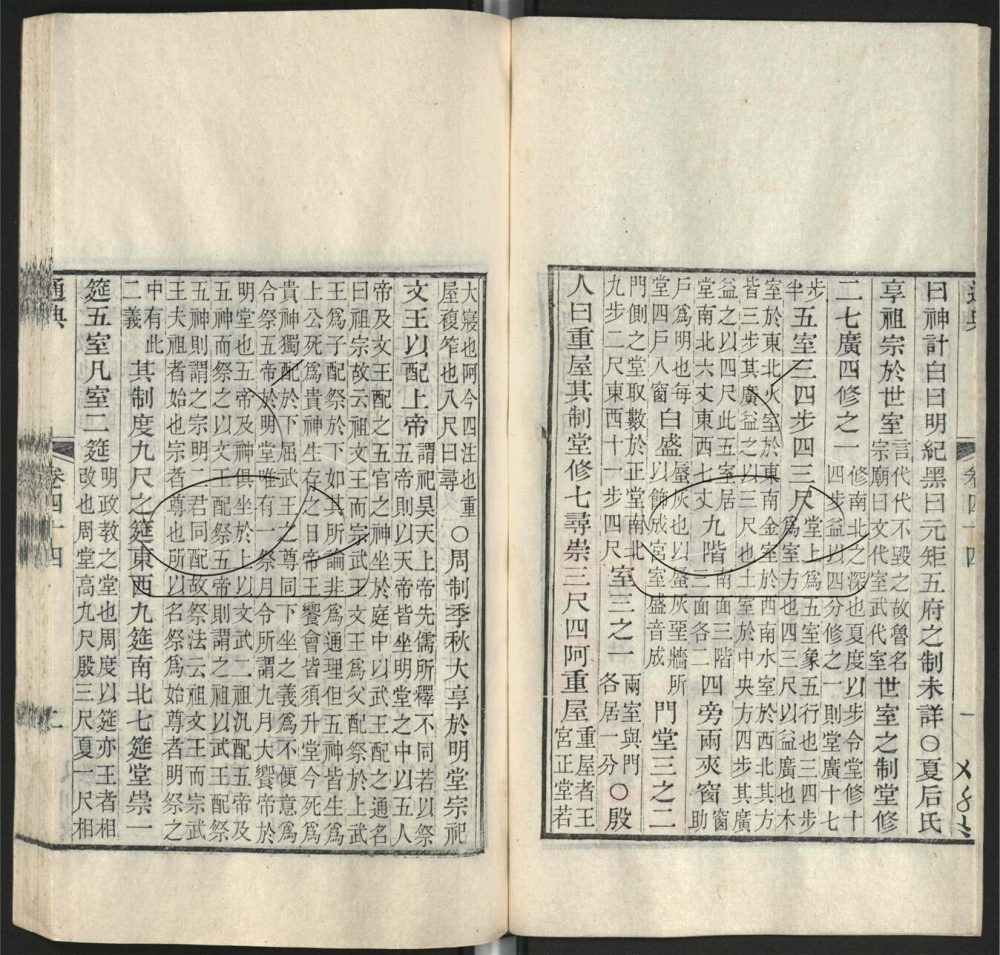 曰神計白曰明紀黑曰元矩五府之制未詳○夏后氏
享祖宗於世室
言代代不毀之故魯名
宗廟曰文代室武代室
世室之制堂修
二七廣四修之一
修南北之深也夏度以步令堂修十
四步益以四分修之一則堂廣十七
步
半
五室三四步四三尺
堂上爲五室象五行也三四步
爲室方也四三尺以益廣也木
室於東北火室於東南金室於西南水室於西北其方
皆三步其廣益之以三尺也土室於中央方四步其廣
益之以四尺此五室居
堂南北六丈東西七丈
九階
南面三階
三面各二
四旁兩夾窗
窗
助
戶爲明也每
室四戶八窗
白盛
蜃灰也以蜃灰堊牆所
以飾成宮室盛音成
門堂三之二
門側之堂取數於正堂南北
九步二尺東西十一步四尺
室三之一
兩室與門
各居一分
○殷
人曰重屋其制堂修七尋崇三尺四阿重屋
重屋者王
宮正堂若
卷四十四
大寢也阿今四注也重
屋複笮也八尺曰尋
○周制季秋大享於明堂宗祀
文王以配上帝
謂祀昊天上帝先儒所釋不同若以祭
五帝則以天帝皆坐明堂之中以五人
帝及文王配之五官之神坐於庭中以武王配之通名
曰祖宗故云祖文王而宗武王文王爲父配祭於上武
王爲子配祭於下如其所論非爲通理但五神皆生爲
上公死爲貴神生存之日帝王饗會皆須升堂今死爲
貴神獨配於下屈武王之尊同下坐之義爲不便意爲
合祭五帝於明堂唯有一祭月令所謂九月大饗帝於
明堂也五帝及神俱坐於上以文武二祖汎配五帝及
五神而祭之以文王配祭五帝則謂之祖以武王配祭
五神則謂之宗明二君同配故祭法云祖文王而宗武
王夫祖者始也宗者尊也所以名祭爲始尊者明祭之
中有此
二義
其制度九尺之筵東西九筵南北七筵堂崇一
筵五室凡室二筵
明政教之堂也周度以筵亦王者相
改也周堂高九尺殷三尺夏一尺相
通典
卷四十四
二